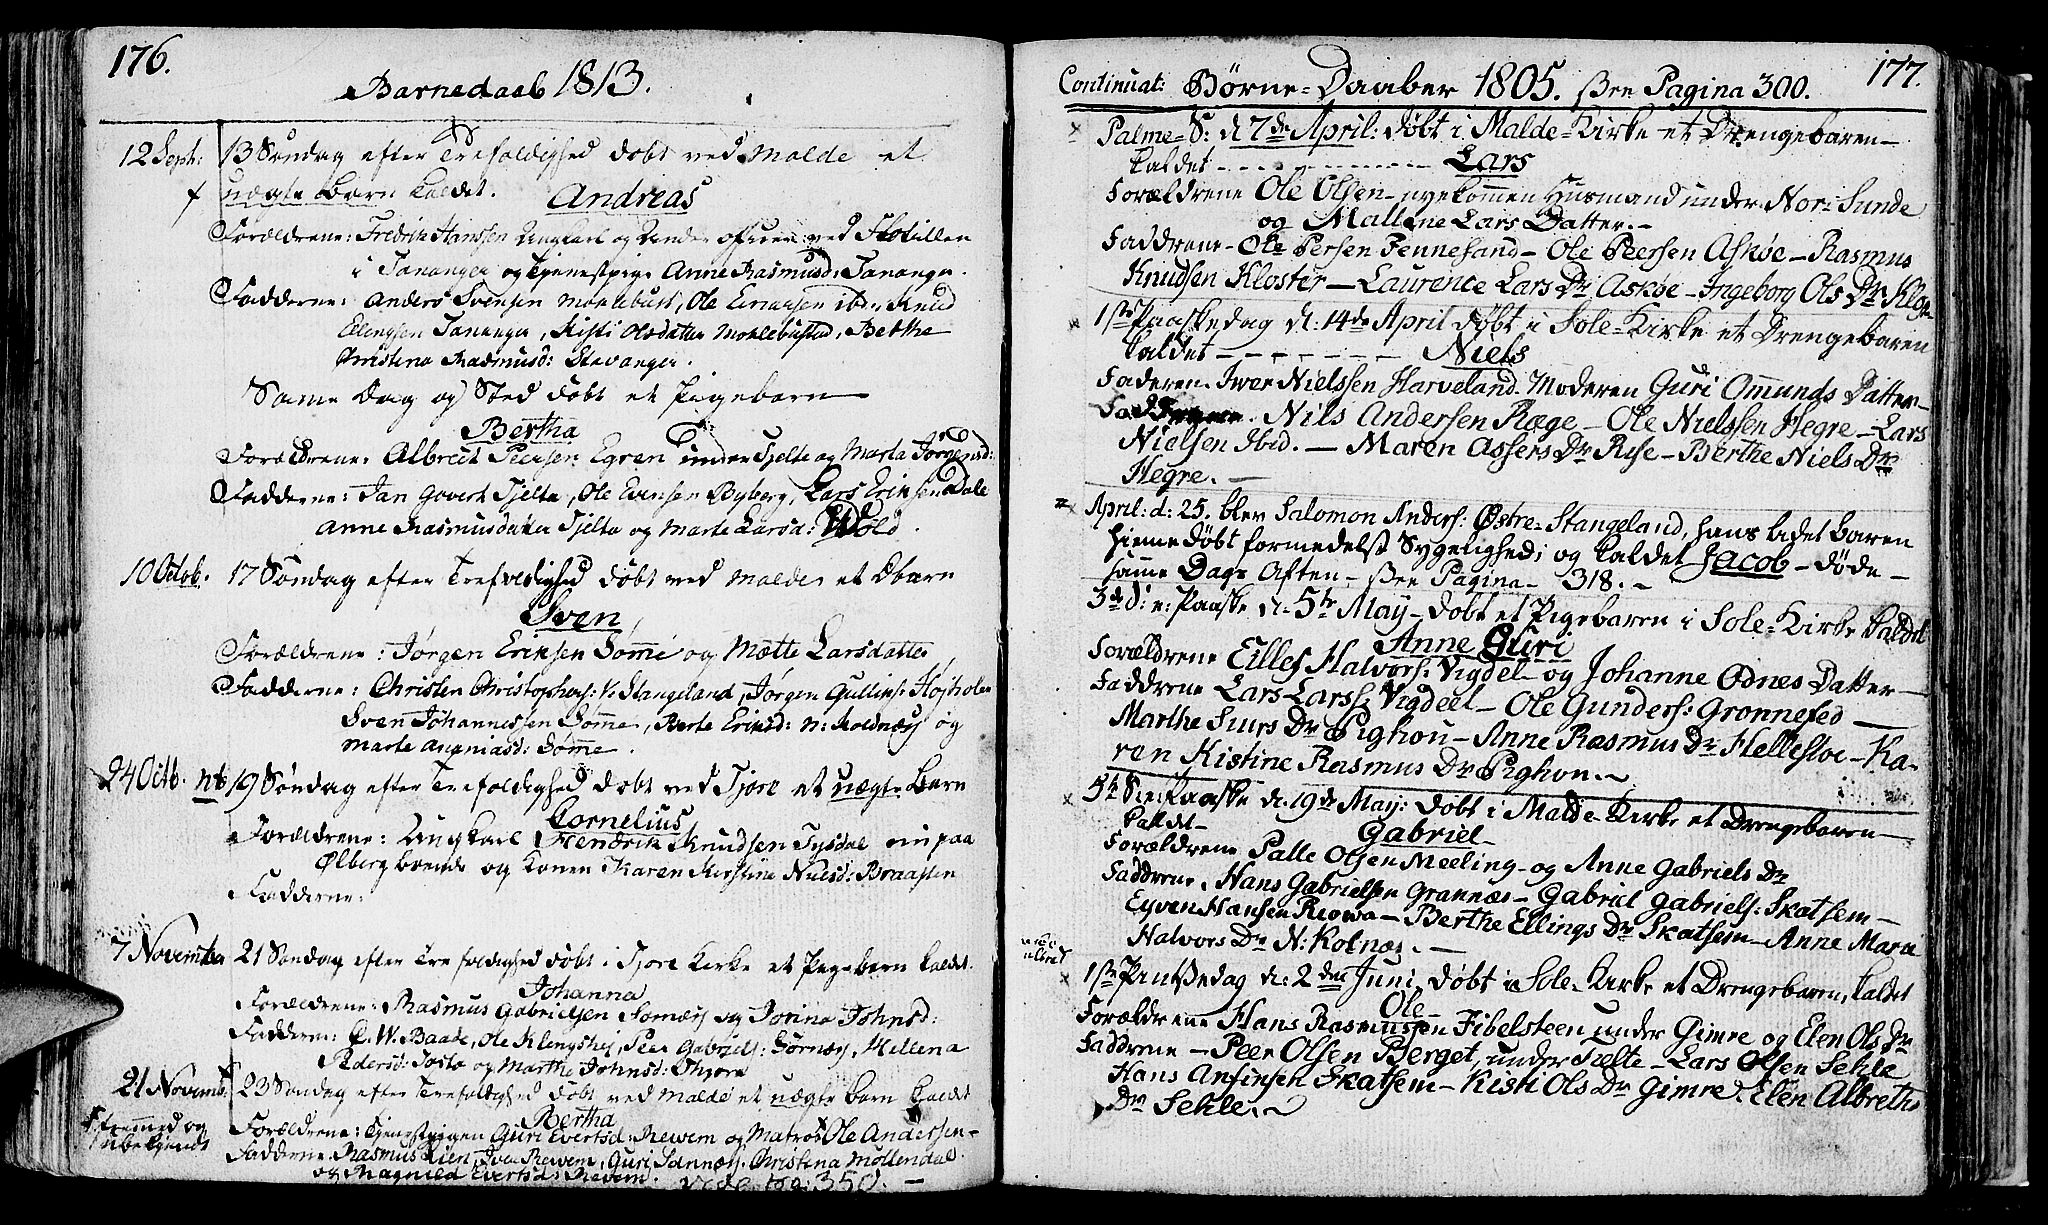 176.
Barnedaab 1813.
12 Sept: 13 Søndag efter Trefoldighed døbt ved Malde et
uægte Barn kaldet. Andreas
Forældrene: Fredrik Hanssen Ungkarl og Under officeer ved Flotillen
i Tananger og Tjenestpige Anne Rasmusd: Tananger.
Fadderne: Anders Svensen Meklebust, Ole Ericksen ibd., Knud
Ellingsen Tananger, Kisti Olsdatter Meklebusted, Berthe
Christina Rasmusd: Stavanger.
Same Dag og Sted døbt et Pigebarn
Bertha
Forældrene: Albreet Peersen Egren under Tjelte og Marta Jørgensd:
Fadderne: Jan Govert Tjelta, Ole Evensen Byberg, Lars Eriksen Dale
Anne Rasmusdatter Tjelta og Marte Larsd: Wold.
10 Octob. 17 Søndag efter Trefoldighed døbt ved Malde et Dbarn
Sven
Forældrene: Jørgen Eriksen Sømme og Mætte Larsdatter
Fadderne: Christen Christophers: V. Stangeland, Jørgen Gullichs: Højholen
Sven Johannessen Sømme, Berte Eriksd: N: Kolnæs og
Marte Ananiasd: Sømme.
24 Octb. nb 19 Søndag efter Trefoldighed døbt ved Tjore et uægte Barn
Cornelius
Forældrene: Ungkarl Hendrik Knudsen Tysdal nu paa
Ølberg boende og Konen Karen Kirstine Nielsd: Braasten
Fadderne:
7 November 21 Søndag efter Trefoldighed døbt i Tjore Kirke et Pigebarn kaldet.
Johanna
Forældrene: Rasmus Gabrielsen Sørnæs og Jorina Johnsd:
Fadderne: C. W. Baade, Ole Klengshej, Peer Gabriels: Sørnæs, Hellena
Pedersd: Josta og Marthe Johnsd: Thjora
21 Novemb. 23 Søndag efter Trefoldighed døbt ved Malde et uægte Barn kaldet
Bertha
fremmed og
ubekjendt
Forældrene: Tjenestpigen Guri Evertsd: Rewem og Matros Ole Andersen
Fadderne Rasmus Lien, Iver Rewem, Guri Sannæs, Christina Møllendal.
og Magnild Evertsd: Revem. vide pag: 350. —
177.
Continuat: Børne-Daaber 1805. See Pagina 300.
Palme-S: d 7de April: døbt i Malde-Kirke et Drengebaren—
kaldet - - - - - Lars
Forældrene Ole Olsen nyekommen Husmand under Nor-Sunde
og Mallene Lars Datter.-
Faddrene- Ole Persen Fennesand- Ole Peersen Askøe- Rasmus
Knudsen Kloster— Laurence Lars Dr Askøe- Ingeborg Ols Dr Kloster
1ste Paaskedag d: 14de April døbt i Sole-Kirke et Drengebaren
kaldet - - - - - Niels
Faderen. Iver Nielssen Harveland. Moderen Guri Omunds Datter-
Faddrene Nils Andersen Ræge- Ole Nielssen Hegre- Lars
Nielsen Ibid. — Maren Assers Dr Rise- Berthe Niels Dr
Hegre.—
April: d: 25. blev Salomon Anders: Østre-Stangeland, hans ladet baren
hieme døbt formedelst Sygelighed; og kaldet Jacob- døde-
samme Dags Aften- See Pagina- 318.-
3de S: e: Paaske d. 5te May- døbt et Pigebaren i Sole-Kirke kaldet
Anne Guri
Forældrene Eilles Halvors: Vigdel- og Johanne Odnes Datter—
Faddrene Lars Larss: Vigdeel- Ole Gunders: Gronnefed—
Marthe Siurs Dr Pighou- Anne Rasmus Dr Hellestoe- Ka-
ren Kistine Rasmus Dr Pighon.~
5te S. e: Paaske d. 19de May: døbt i Malde-Kirke et Drengebaren—
kaldet- Gabriel-
Forældrene Palle Olsen Meeling- og Anne Gabriels Dr
Faddrene. Hans Gabrielsen Grannæs- Gabriel Gabriels: Skatsem-
Eyven Hansen Reowa- Berthe Ellings Dr Skatsem- Anne Mara
Halvors Dr N: Kolnæs.—
1ste Pintsedag d: 2den Juni. døbt i Sole-Kirke et Drengebaren, kaldet
Ole-
Forældrene Hans Rasmussen Fibelsteen under Gimre og Elen Ols Dr
Faddrene- Peer Olsen Berget, under Tielte- Lars Olsen Sehle
Hans Ansinsen Skatsem- Kisti Ols Dr Gimre. Elen Albreths
Dr Sehle.~